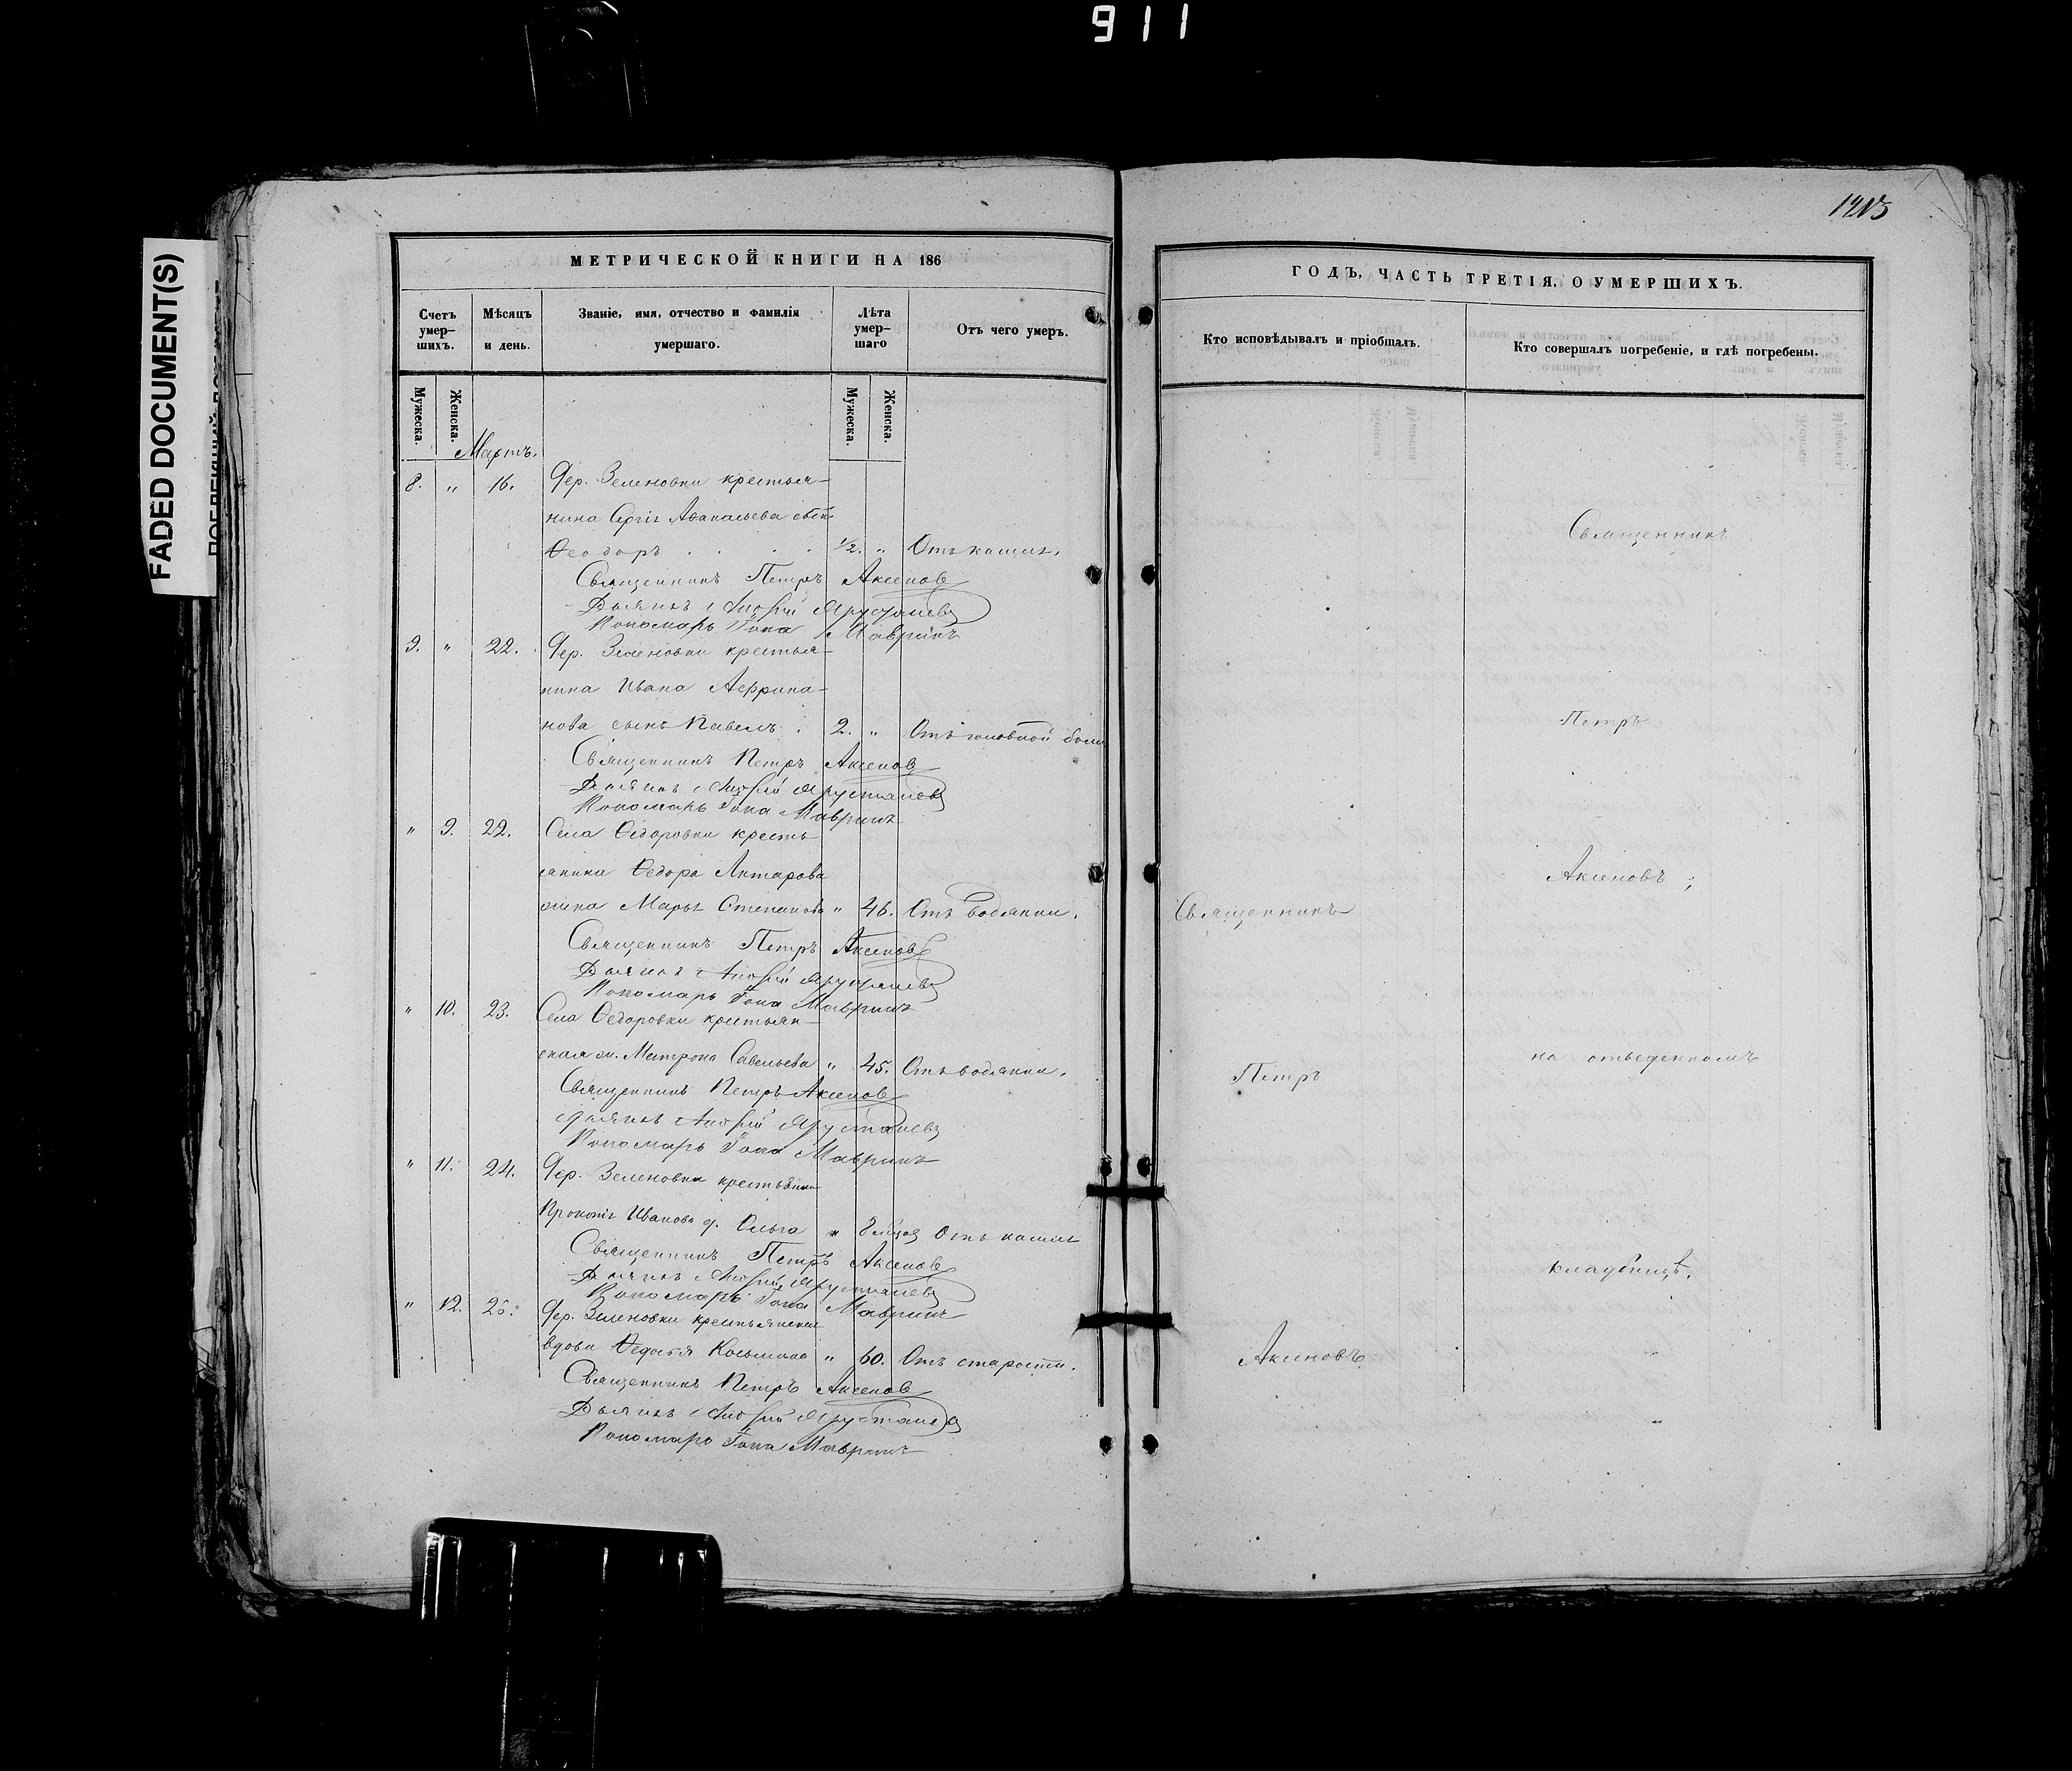 911
FADED DOCUMENT(S)
1413
МЕТРИЧЕСКОЙ КНИГИ НА 186
Счетъ умер-шихъ.
Мѣсяцъ и день.
Званіе, имя, отчество и фамилія умершаго.
Лѣта умер-шаго
Отъ чего умеръ.
Мужеска.
Женска.
Мужеска.
Женска.
Мартъ.
8. " 16. Дер. Зеленовки крестья-
нина Сергія Аѳанасьева сынъ
Ѳеодоръ . . . . 1/2. " Отъ кашля.
Священникъ Петръ Аксеновъ
Дьячекъ Андрей
Пономарь Іона Мавринъ
9. " 22. Дер. Зеленовки крестья-
нина Ивана
нова сынъ Павелъ . 2. " Отъ головной боли
Священникъ Петръ Аксеновъ
Дьячекъ Андрей
Пономарь Іона Мавринъ
" 9. 22. Села Ѳедоровки кресть
янина Ѳедора
жена Марья Степанова " 46. Отъ водянки.
Священникъ Петръ Аксеновъ
Дьячекъ Андрей
Пономарь Іона Мавринъ
" 10. 23. Села Ѳедоровки крестьян-
ская ж. Матрона Савельева " 45. Отъ водянки.
Священникъ Петръ Аксеновъ
Дьячекъ Андрей
Пономарь Іона Мавринъ
" 11. 24. Дер. Зеленовки крестьянина
Прокопія Иванова д. Ольга " Отъ кашля
Священникъ Петръ Аксеновъ
Дьячекъ Андрей
Пономарь Іона Мавринъ
" 12. Дер. Зеленовки крестьянская
вдова Ѳедосья Косьмина " 60. Отъ старости.
Священникъ Петръ Аксеновъ
Дьячекъ Андрей
Пономарь Іона Мавринъ
ГОДЪ, ЧАСТЬ ТРЕТІЯ, О УМЕРШИХЪ.
Кто исповѣдывалъ и пріобщалъ.
Кто совершалъ погребеніе, и гдѣ погребены.
Священникъ
Петръ
Аксеновъ
Священникъ
Петръ
Аксеновъ;
на отведенномъ
кладбищѣ.